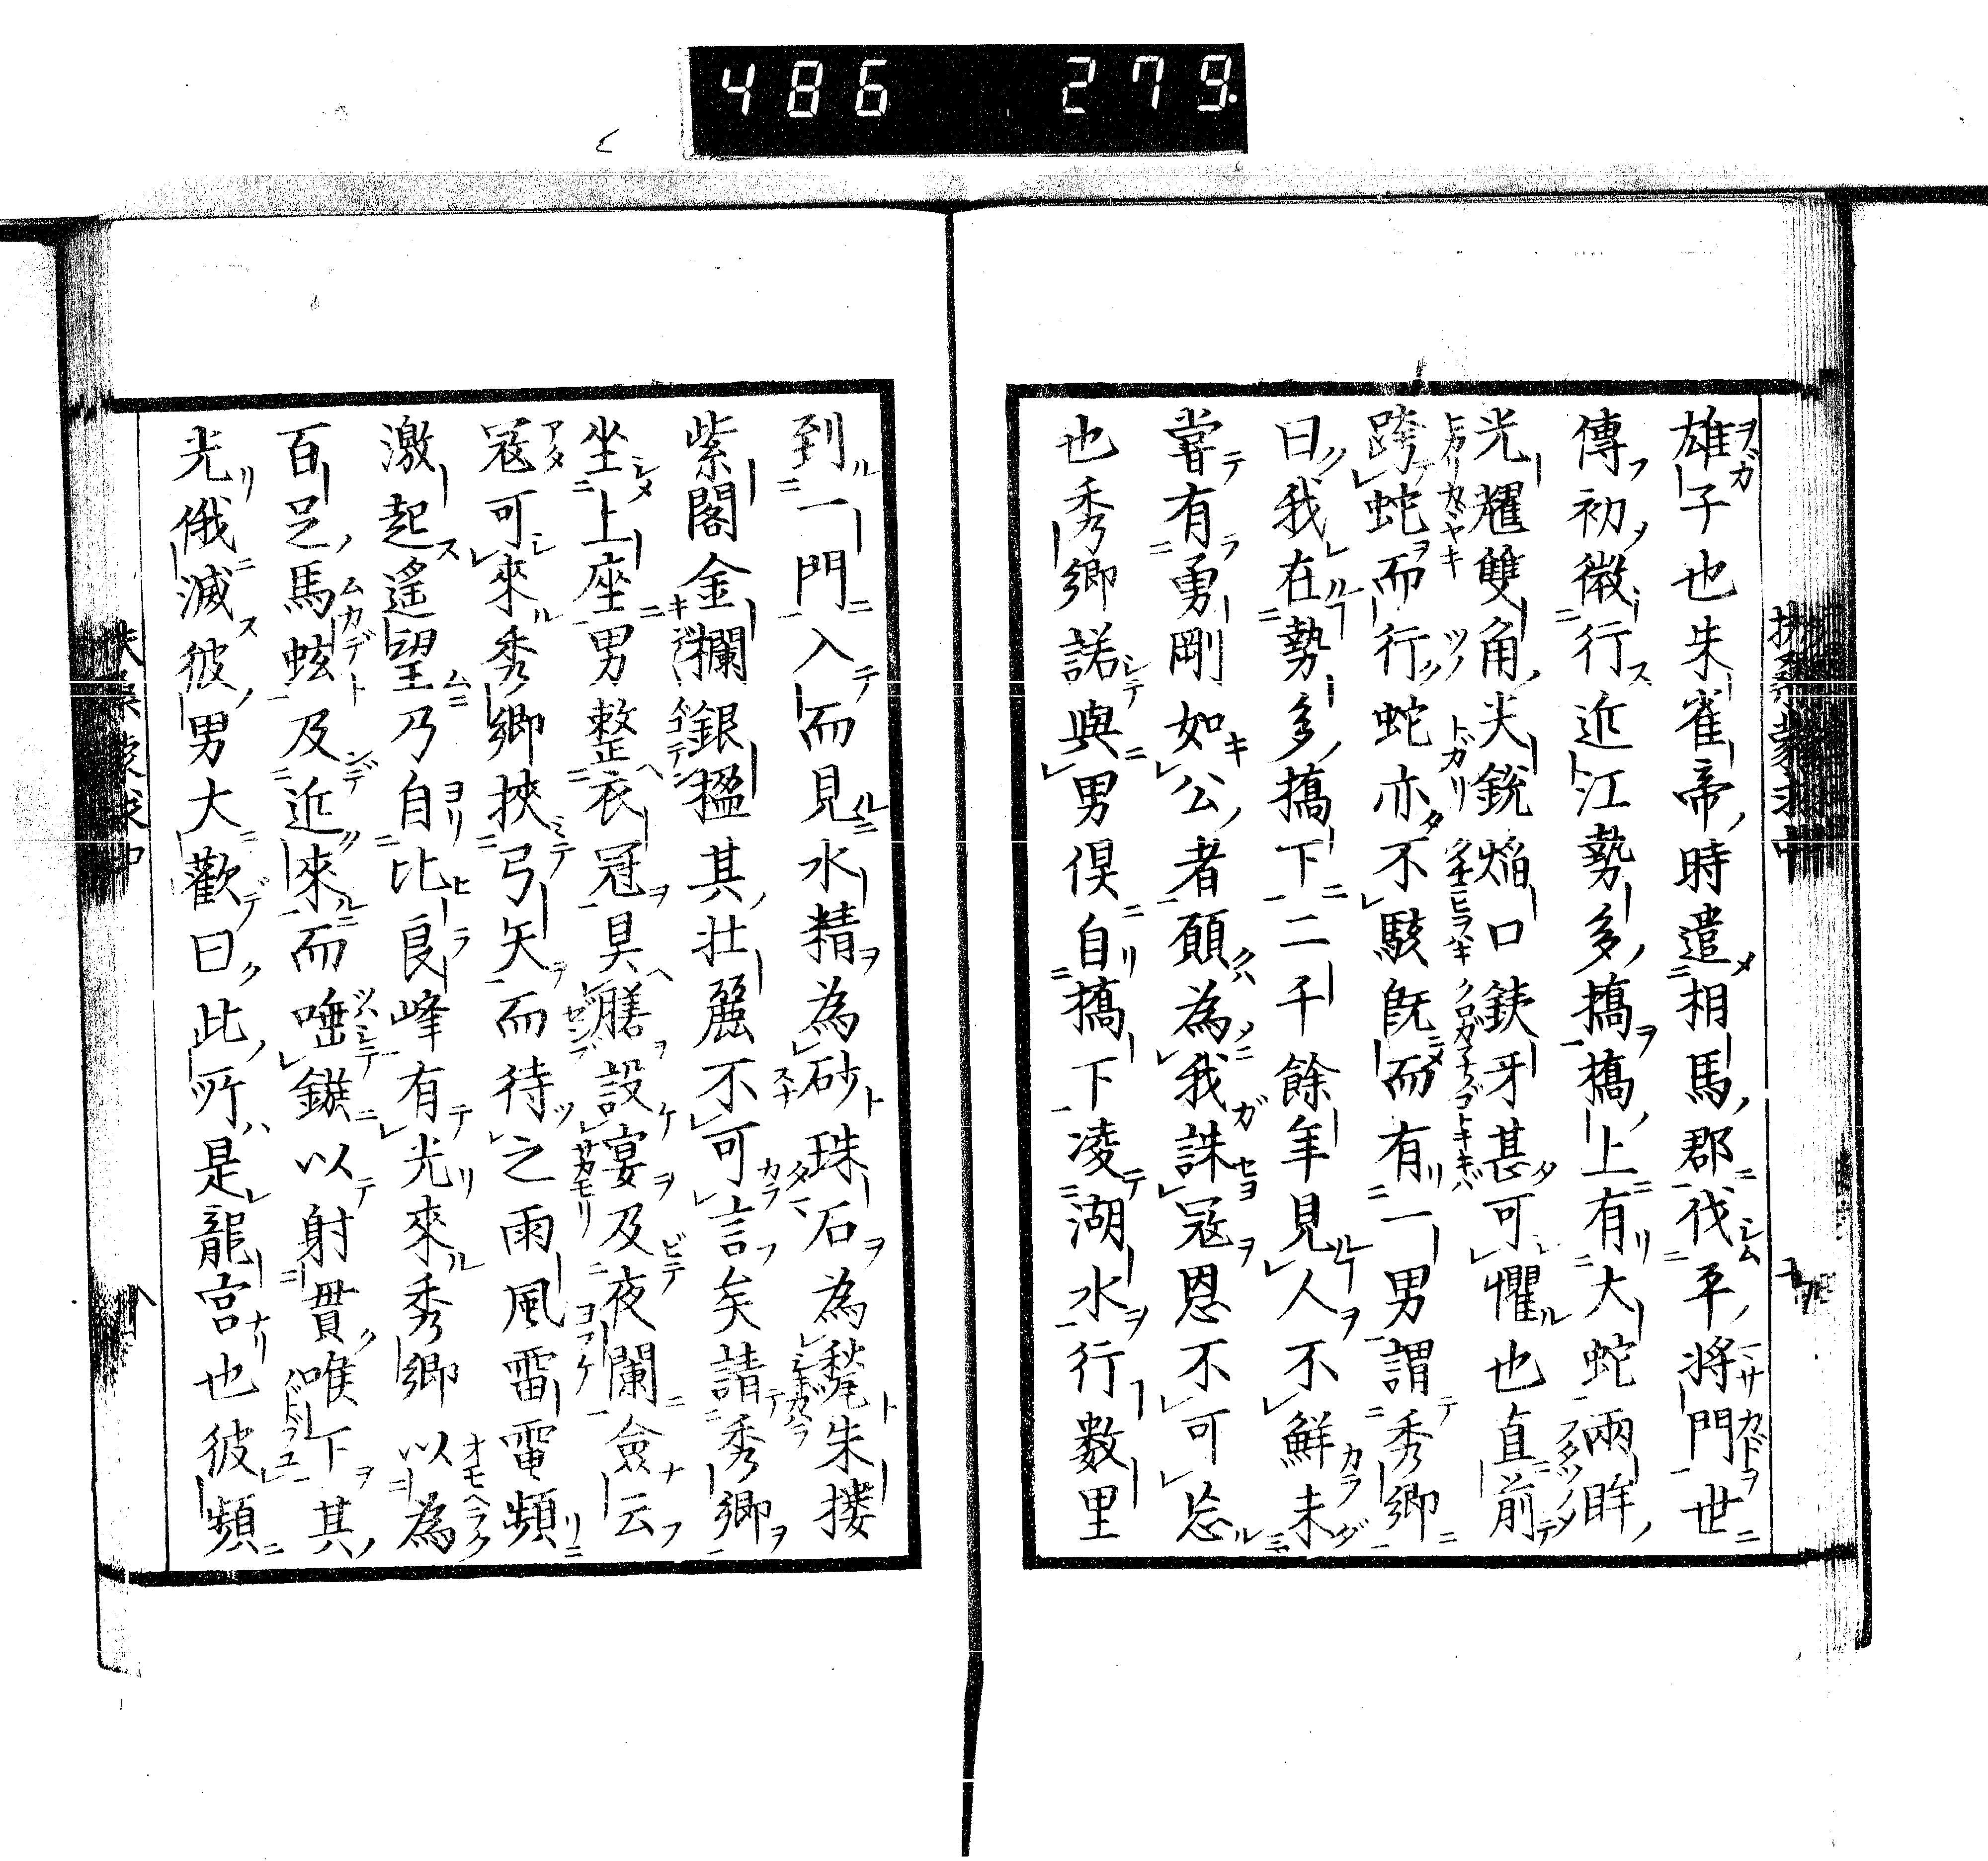 486 279.
雄子也朱雀帝時遣相馬郡伐平將門世
傳初微行近江勢多撟撟上有大蛇兩眸
光耀雙角尖銳焔口鋏牙甚可懼也直前
跨蛇而行蛇亦不駭既而有一男謂秀鄉
曰我在勢多撟下二千餘年見人不鮮未
嘗有勇剛如公者願為我誅冦恩不可忘
也秀鄉諾與男俱自撟下凌湖水行数里
到一門入而見水精為砂珠石為甃朱摟
紫閣金欄銀楹其壯麗不可言矣請秀鄉
坐上座男整衣冠具膳設宴及夜闌僉云
冦可來秀鄉挾弓矢而待之雨風雷電頻
激起遙望乃自比良峰有光來秀鄉以為
百足馬蚿及近來而唾鏃以射貫喉下其
光俄滅彼男大歡曰此所是龍宮也彼頻